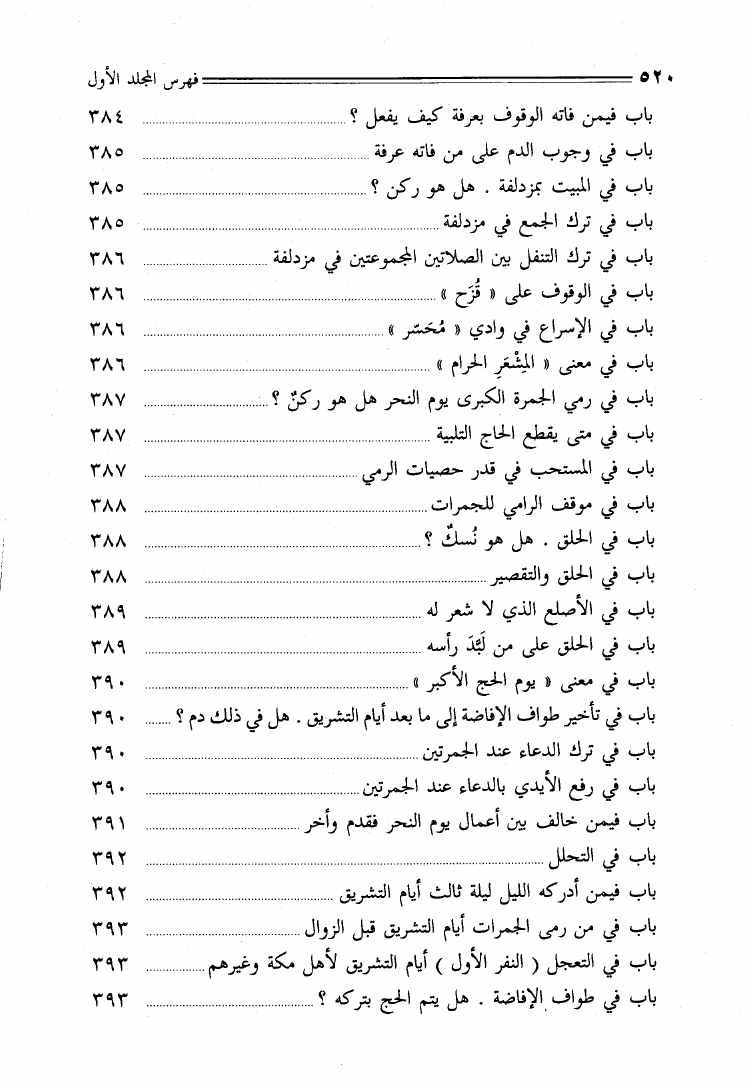 ٥٢٠ فهرس المجلد الأول
باب فيمن فاته الوقوف بعرفة كيف يفعل ؟ ٣٨٤
باب في وجوب الدم على من فاته عرفة ٣٨٥
باب في المبيت بمزدلفة . هل هو ركن ؟ ٣٨٥
باب في ترك الجمع في مزدلفة ٣٨٥
باب في ترك التنفل بين الصلاتين المجموعتين في مزدلفة ٣٨٦
باب في الوقوف على « قُزَح » ٣٨٦
باب في الإسراع في وادي « مُحَسّر » ٣٨٦
باب في معنى « المِشْعَرِ الحرام » ٣٨٦
باب في رمي الجمرة الكبرى يوم النحر هل هو ركنٌ ؟ ٣٨٧
باب في متى يقطع الحاج التلبية ٣٨٧
باب في المستحب في قدر حصيات الرمي ٣٨٧
باب في موقف الرامي للجمرات ٣٨٨
باب في الحلق . هل هو نُسكٌ ؟ ٣٨٨
باب في الحلق والتقصير ٣٨٨
باب في الأصلع الذي لا شعر له ٣٨٩
باب في الحلق على من لَبَّدَ رأسه ٣٨٩
باب في معنى « يوم الحج الأكبر » ٣٩٠
باب في تأخير طواف الإفاضة إلى ما بعد أيام التشريق . هل في ذلك دم ؟ ٣٩٠
باب في ترك الدعاء عند الجمرتين ٣٩٠
باب في رفع الأيدي بالدعاء عند الجمرتين ٣٩٠
باب فيمن خالف بين أعمال يوم النحر فقدم وأخر ٣٩١
باب في التحلل ٣٩٢
باب فيمن أدركه الليل ليلة ثالث أيام التشريق ٣٩٢
باب في من رمى الجمرات أيام التشريق قبل الزوال ٣٩٣
باب في التعجل ( النفر الأول ) أيام التشريق لأهل مكة وغيرهم ٣٩٣
باب في طواف الإفاضة . هل يتم الحج بتركه ؟ ٣٩٣